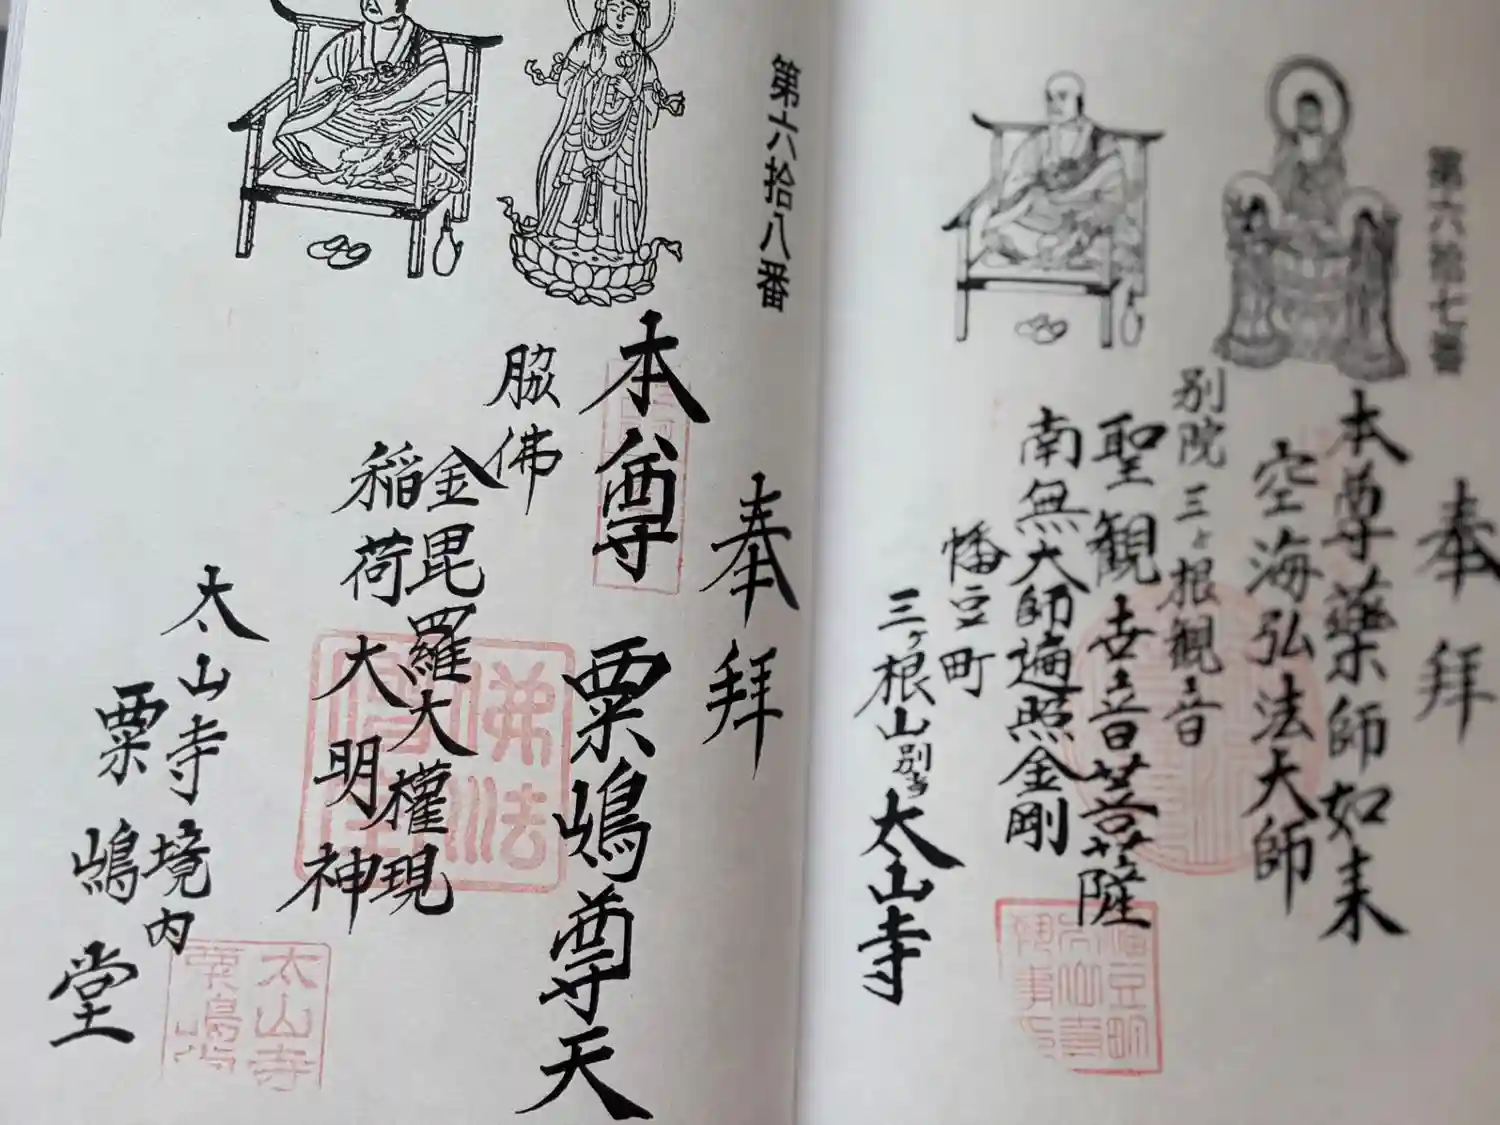 第六拾七番
奉拝
本尊藥師如来
空海弘法大師
別院三ヶ根観音
聖観世音菩薩
南無大師遍照金剛
幡豆町
三ヶ根山別当太山寺
第六拾八番
奉拝
本尊粟嶋尊天
脇佛
金毘羅大権現
稲荷大明神
太山寺境内
粟嶋堂
佛法
太山寺
粟嶋